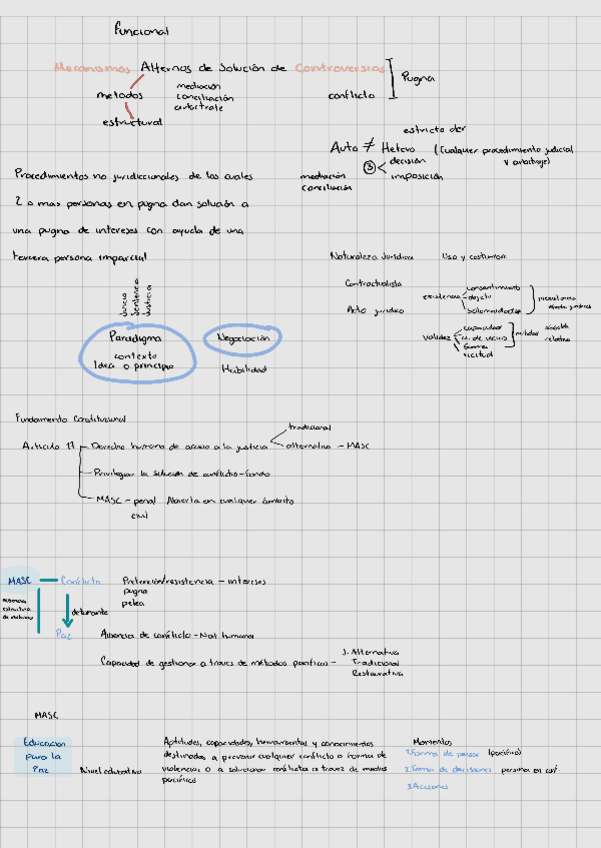 Funcional
Mecanismos Alternos de Solución de Controversias
Pugna
métodos
mediación
conciliación
arbitrate
conflicto
estructural
estricto der
Auto ≠ Hetero (Cualquier procedimiento judicial y arbitraje)
③ decisión
imposición
mediación
conciliación
Procedimientos no jurisdiccionales de los cuales
2 o mas personas en pugna dan solución a
una pugna de intereses con ayuda de una
tercera persona imparcial
Naturaleza Jurídica Uso y costumbre
Contractualista
Acto jurídico
existencia
consentimiento
objeto
solemnidades
inexistencia
validez
capacidad
forma
nulidad
absoluta
relativa
Juicio
Sentencia
Justicia
Paradigma
contexto
Idea o principio
Negociación
Habilidad
Fundamento Constitucional
Artículo 17
Derecho humano de acceso a la justicia
tradicional
alternativa - MASC
Privilegiar la solución de conflicto-fondo
MASC - penal Abierta en cualquier contexto
civil
MASC - Conflicto Pretención/resistencia - intereses
pugna
pelea
detonante
Paz Ausencia de conflicto - Not humana
Capacidad de gestionar a traves de métodos pacíficos -
J. Alternativa
Tradicional
Restaurativa
MASC
Educacion para la Paz
Nivel educativo
Aptitudes, capacidades, herramientas y conocimientos
destinados a prevenir cualquier conflicto o forma de
violencia; o a solucionar conflictos a travez de medios
pacíficos
Momentos
1. Forma de pensar (pacífico)
2. Toma de decisiones personas en conf.
3. Acciones